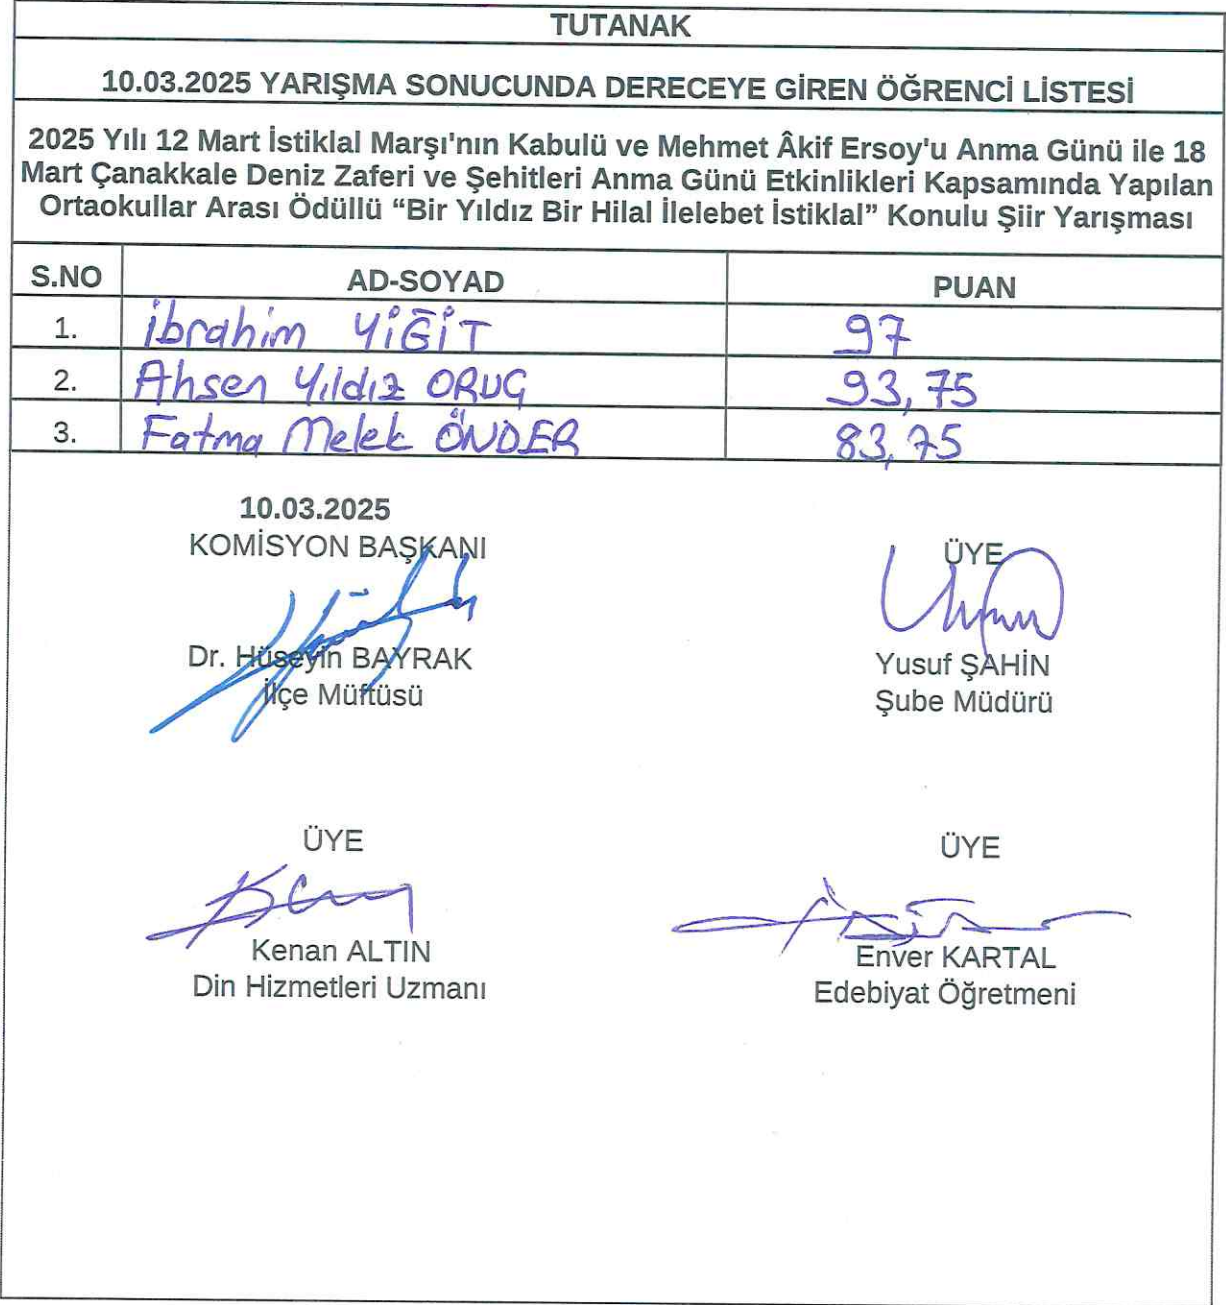 TUTANAK
10.03.2025 YARIŞMA SONUCUNDA DERECEYE GİREN ÖĞRENCİ LİSTESİ
2025 Yılı 12 Mart İstiklal Marşı'nın Kabulü ve Mehmet Âkif Ersoy'u Anma Günü ile 18
Mart Çanakkale Deniz Zaferi ve Şehitleri Anma Günü Etkinlikleri Kapsamında Yapılan
Ortaokullar Arası Ödüllü “Bir Yıldız Bir Hilal İlelebet İstiklal” Konulu Şiir Yarışması
S.NO AD-SOYAD PUAN
1. İbrahim YİĞİT 97
2. Ahsen Yıldız ORUG 93,75
3. Fatma Melek ÖNDER 83,75
10.03.2025
KOMİSYON BAŞKANI
ÜYE
Dr. Hüseyin BAYRAK
Yusuf ŞAHİN
İlçe Müftüsü
Şube Müdürü
ÜYE
ÜYE
Kenan ALTIN
Enver KARTAL
Din Hizmetleri Uzmanı
Edebiyat Öğretmeni